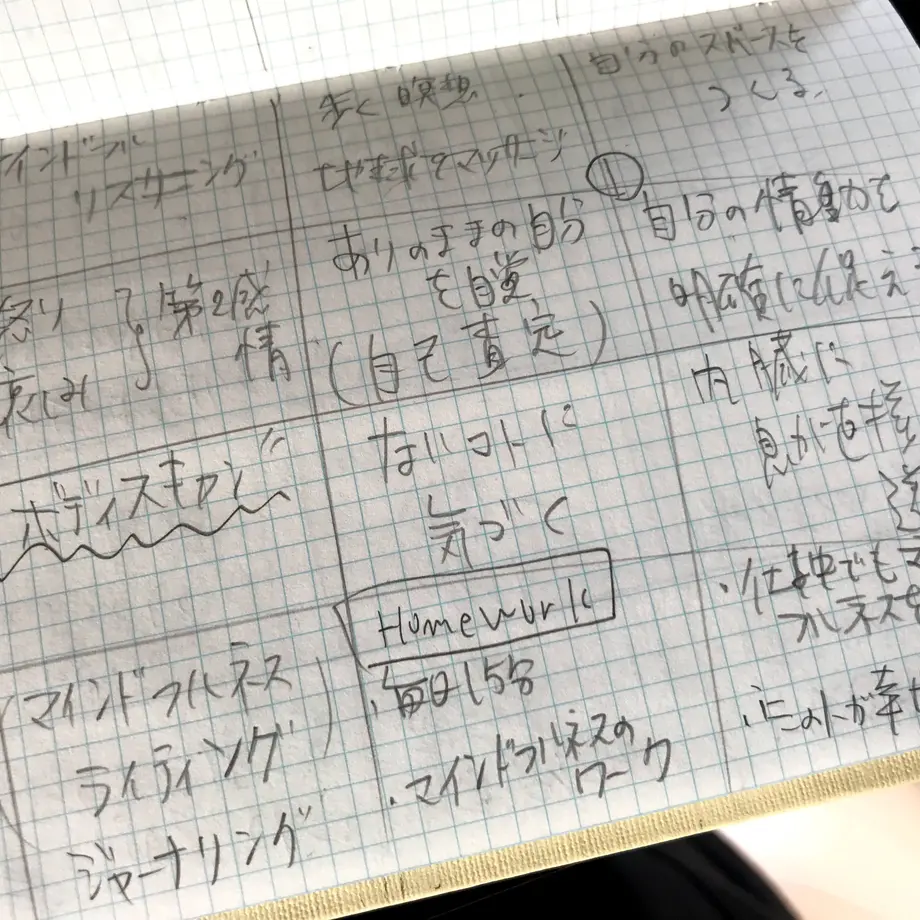 歩く瞑想
自分のスペースを
つくる。
インドフル
リスニング
マッサージ
ありのままの自分
を自覚
(自己査定)
①
自分の情動を
明確に捉え
怒り
哀しみ
第2感
情
ボディスキャン
なにコトに
気づく
内臓に
息を
Homework
・毎日15分
・マインドフルネスの
ワーク
・仕事中でもマ
フルネスを
(マインドフルネス)
ライティング
ジャーナリング